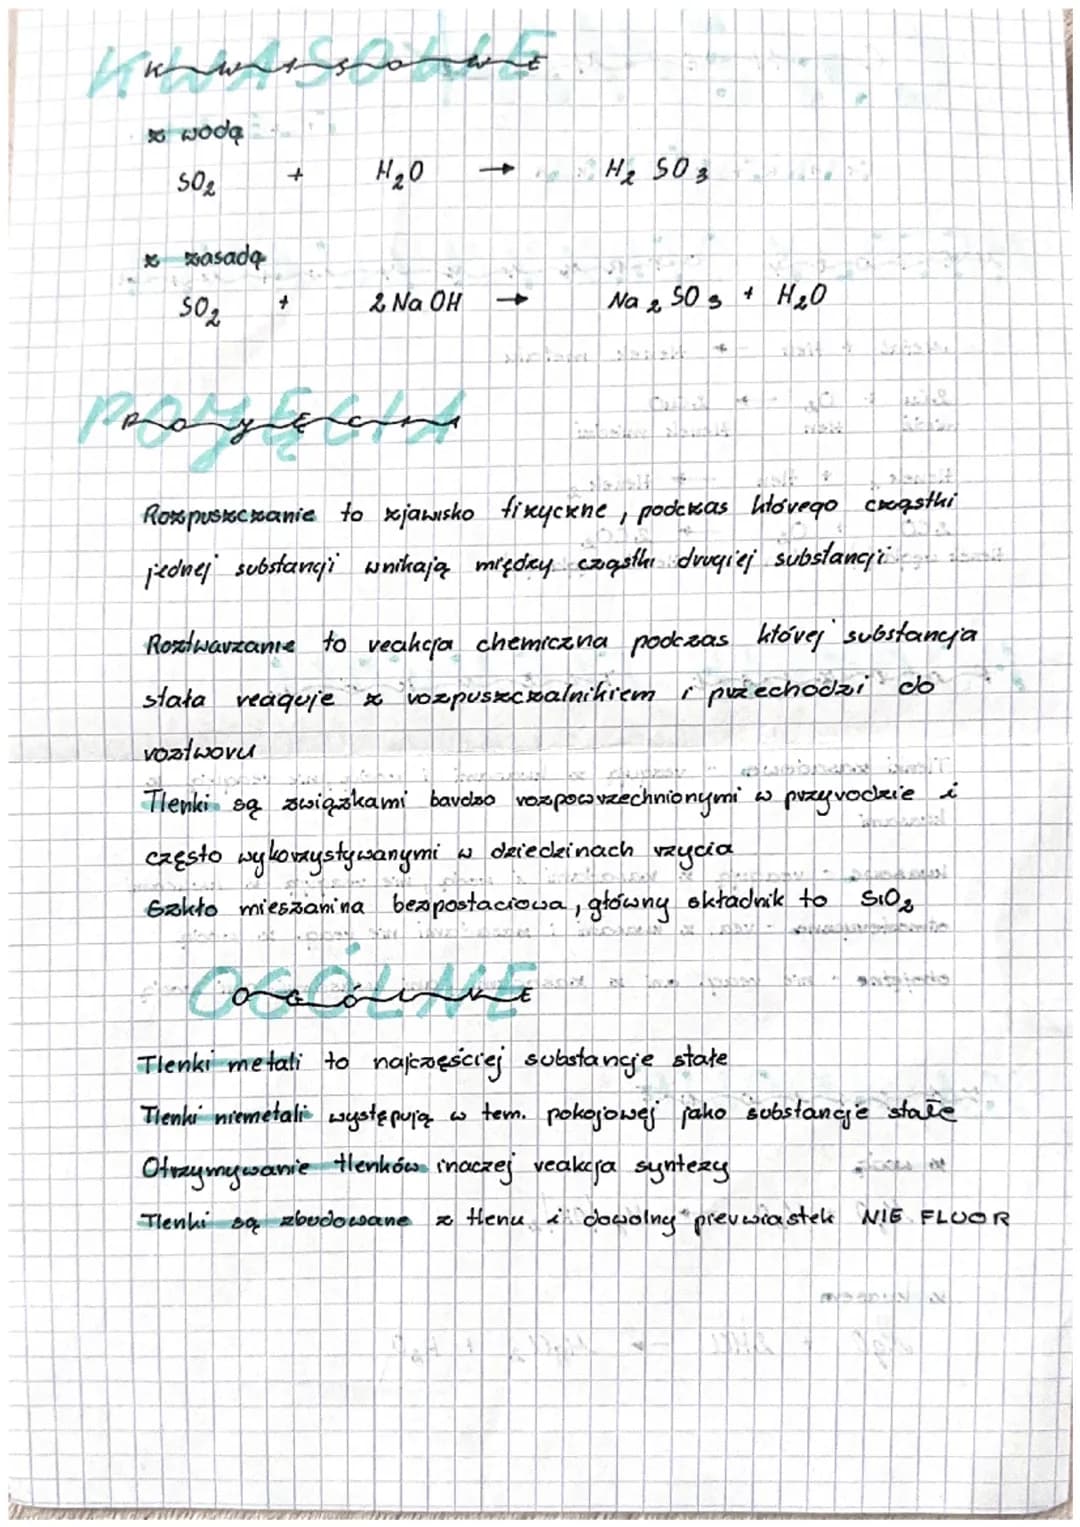 KWASOWE
z wodą
SO₂ + H₂O → H₂ SO₃
z zasadą
SO₂ + 2 NaOH → Na₂ SO₃ + H₂O
POJĘCIA
Rozpuszczanie to zjawisko fizyczne, podczas którego cząstki
jednej substancji wnikają między cząstki drugiej substancji
Roztwarzanie to reakcja chemiczna podczas której substancja
stała reaguje z rozpuszczalnikiem i przechodzi do
roztworu
Tlenki są związkami bardzo rozpowrzechnionymi w przyrodzie i
często wykorzystywanymi w dziedzinach rzycia
Szkło mieszanina bezpostaciowa, główny składnik to SiO₂
OGÓLNE
Tlenki metali to najczęściej substancje stałe
Tlenki niemetali występują w tem. pokojowej jako substancje stałe
Otrzymywanie tlenków inaczej reakcja syntezy
Tlenki są zbudowane z tlenu i dowolny pierwiastek NIE FLUOR